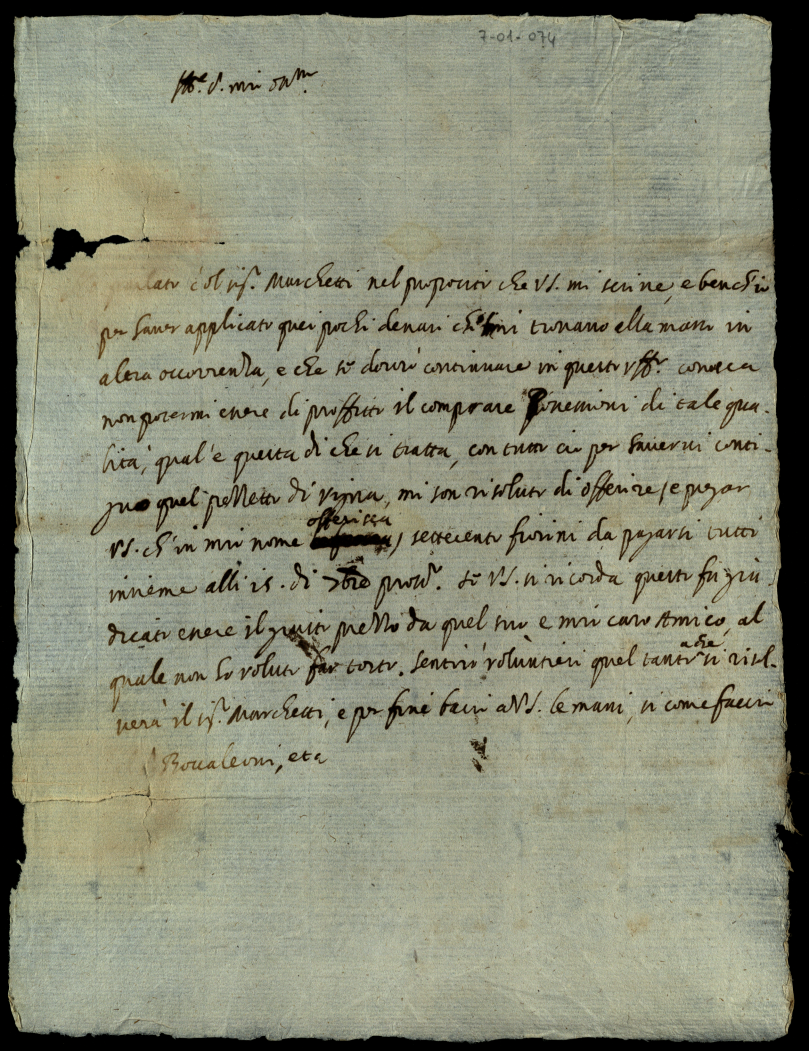 7-01-074
Ill.e S. mio oss.mo
parlato col sig.r Marchetti nel proposito che VS. mi scrive, e bench'io
per haver applicato quei pochi denari ch' mi trovavo alla mano in
altra occorrenza, e che se dovrò continuare in questo uff.o conosca
non potermi essere di proffitto il comprare Possessioni di tale qua-
lità, qual'è questa di che si tratta, con tutto ciò per havervi conti-
guo quel pezzetto di vigna, mi son risoluto di offerire (e pregar
VS. ch'in mio nome offerisca) settecento fiorini da pagarsi tutti
insieme alli 15. di 7bre pross.o. Se VS. si ricorda questo fu giu-
dicato essere il giusto prezzo da quel suo e mio caro Amico, al
quale non ho voluto far torto. Sentirò voluntieri quel tanto a che si risol-
verà il sig.r Marchetti, e per fine bacio a VS. le mani, sì come faccio
Boccaleoni, eta